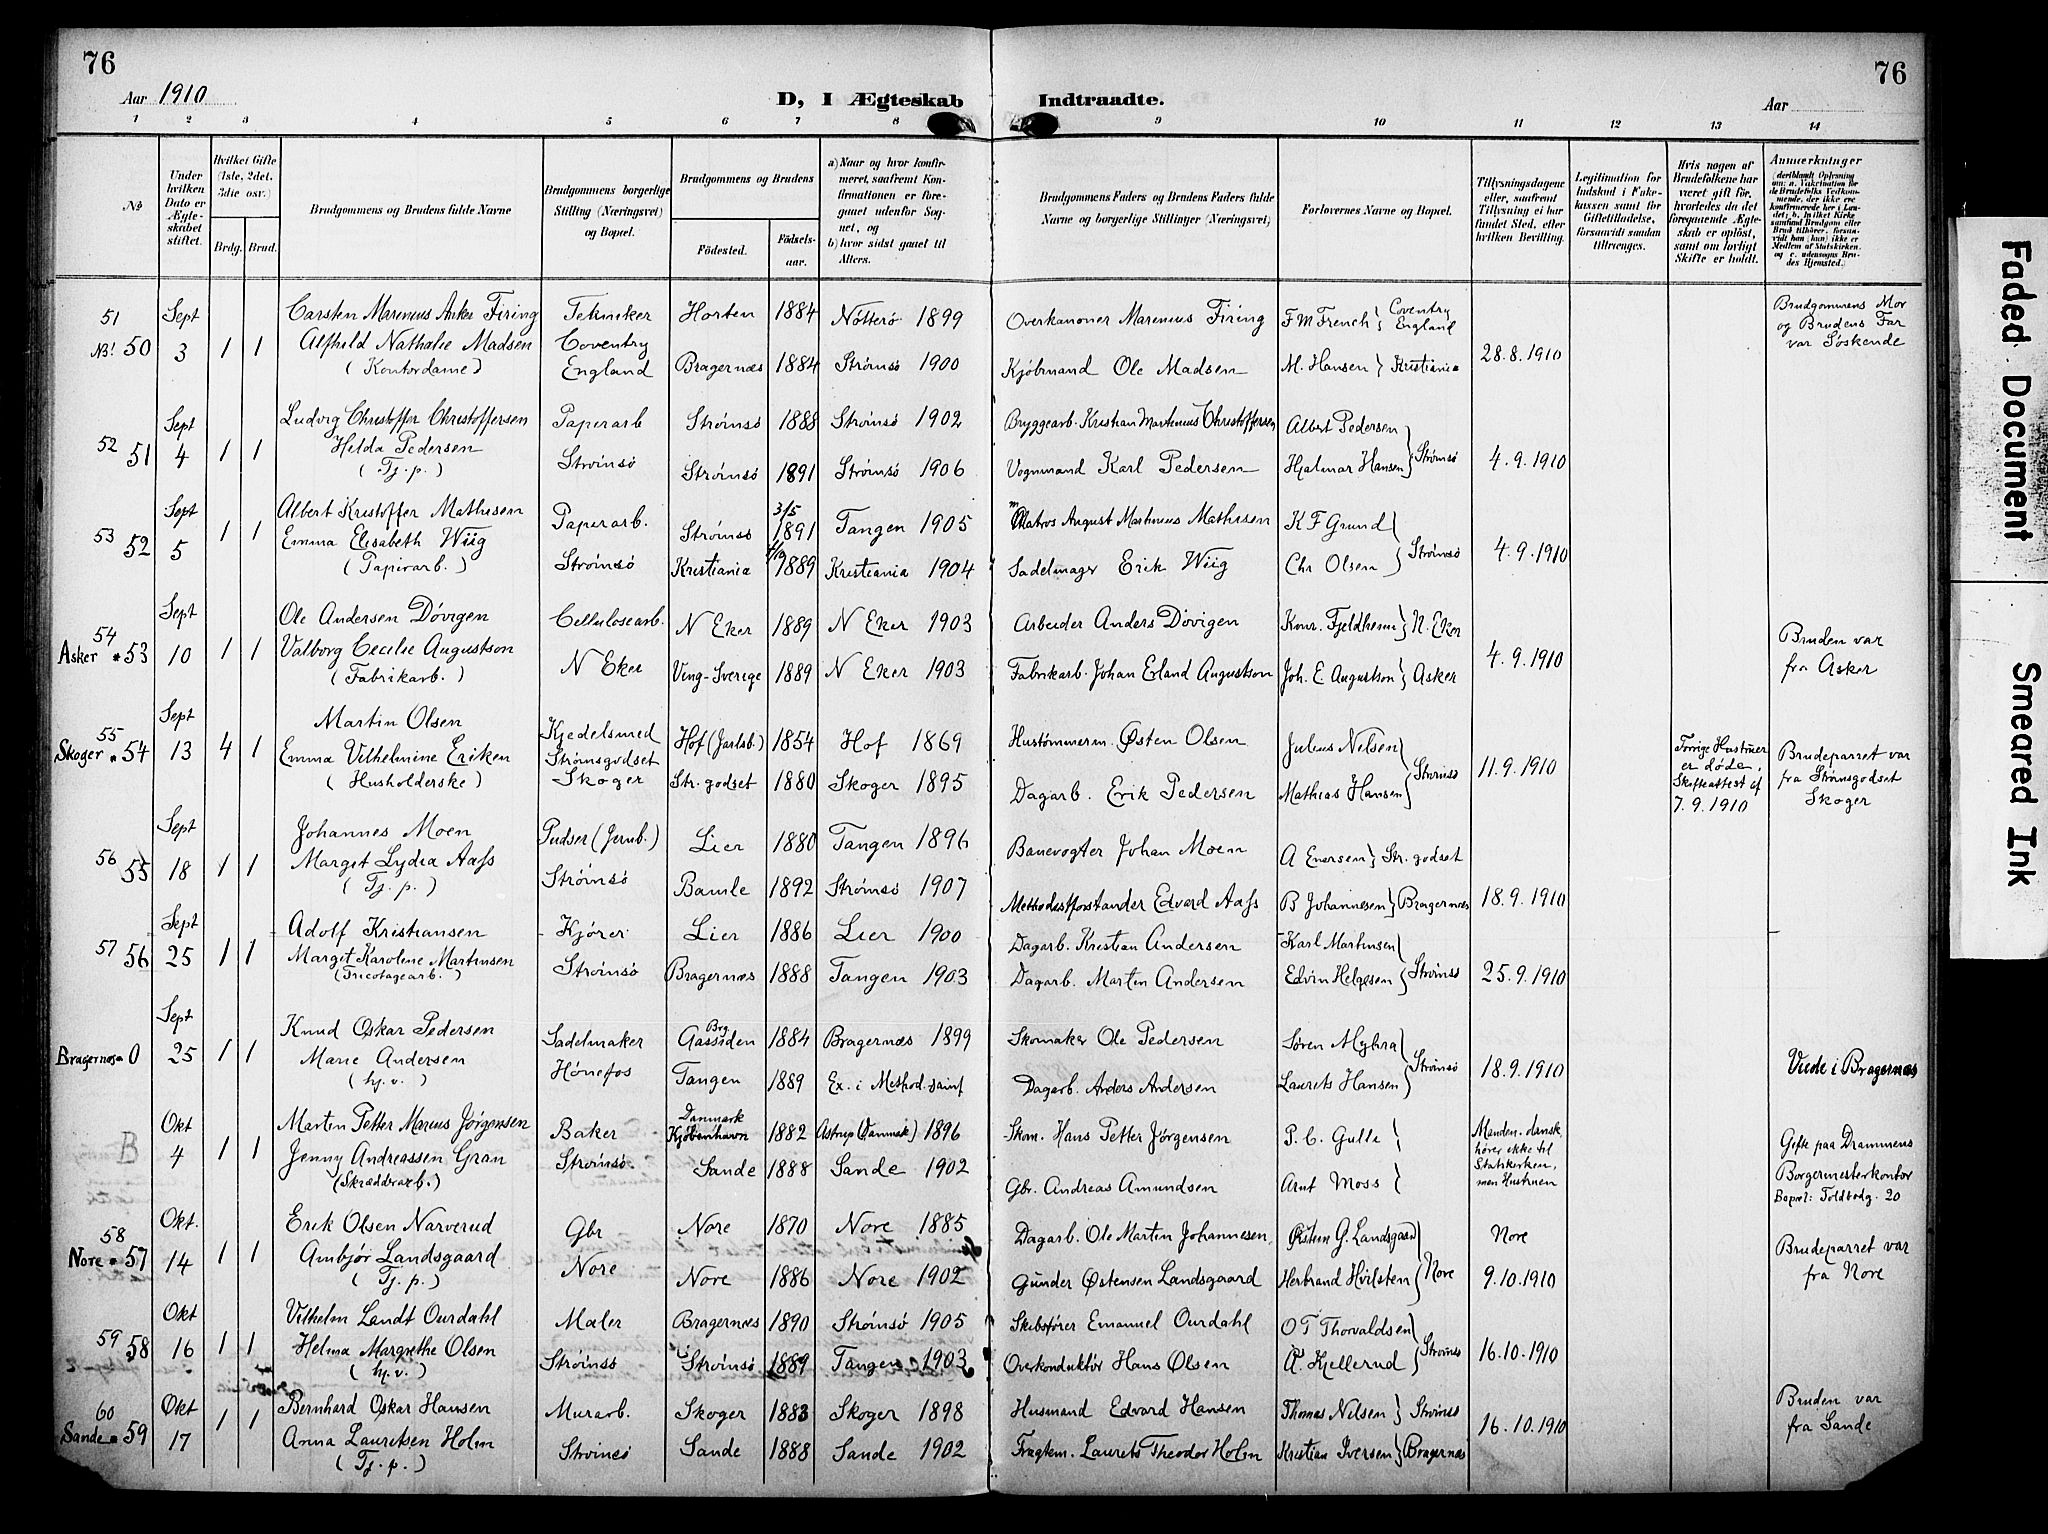 76
76
Aar 1910
D, I Ægteskab Indtraadte.
Aar
1 2 3 4 5 6 7 8 9 10 11 12 13 14
№
Under hvilken Dato er Ægteskabet stiftet.
Hvilket Gifte (1ste, 2det, 3die osv.)
Brdg. Brud.
Brudgommens og Brudens fulde Navne
Brudgommens borgerlige Stilling (Næringsvei) og Bopæl.
Brudgommens og Brudens
Fødested. Fødselsaar.
a) Naar og hvor konfirmeret, saafremt Konfirmationen er foregaaet udenfor Sognet, og
b) hvor sidst gaaet til Alters.
Brudgommens Faders og Brudens Faders fulde Navne og borgerlige Stillinger (Næringsvei)
Forlovernes Navne og Bopæl.
Tillysningsdagene eller, saafremt Tillysning ei har fundet Sted, efter hvilken Bevilling.
Legitimation for Indskud i Enkekassen samt for Giftetilladelse, forsaavidt saadan tiltrænges.
Hvis nogen af Brudefolkene har været gift før, hvorledes da det foregaaende Ægteskab er opløst, samt om lovligt Skifte er holdt.
Anmerkninger (deriblandt Oplysning om: a. Vaccination for de Brudefolks Vedkommende, der ikke ere konfirmerede her i Landet; b. hvilket Kirkesamfund Brudgom eller Brud tilhører, forsaavidt han (hun) ikke er Medlem af Statskirken, og c. udensogns Brudes Hjemsted.)
51 Sept Carsten Marenius Anker Firing Tekniker Horten 1884 Nøtterø 1899 Overkanoner Marenius Firing F M French } Coventry England Brudgommens Mor
NB! 50 3 1 1 Alfhild Nathalie Madsen Coventry 28.8.1910 og Brudens Far
(Kontordame) England Bragernæs 1884 Strømsø 1900 Kjøbmand Ole Madsen M. Hansen } Kristiania var Søskende
52 Sept Ludvig Christoffer Christoffersen Papirarb Strømsø 1888 Strømsø 1902 Bryggearb. Kristian Martinius Christoffersen Albert Pedersen
51 4 1 1 Helda Pedersen Strømsø 4.9.1910
(Tj. p.) Strømsø Strømsø 1891 Strømsø 1906 Vognmand Karl Pedersen Hjalmar Hansen
53 Sept Albert Kristoffer Mathisen Papirarb. Strømsø 3/5 1891 Tangen 1905 Matros August Martinius Mathisen K F Grund
52 5 1 1 Emma Elisabeth Wiig Strømsø 4.9.1910
(Papirarb.) Strømsø Kristiania 1889 Kristiania 1904 Sadelmager Erik Wiig Chr Olsen
54 Sept Ole Andersen Døvigen Cellulosearb. N Eker 1889 N Eker 1903 Arbeider Anders Døvigen Konr. Fjeldheim } N. Eker Bruden var
Asker * 53 10 1 1 Valborg Cecilie Augustson 4.9.1910 fra Asker
(Fabrikarb.) N Eker Ving-Sverige 1889 N Eker 1903 Fabrikarb. Johan Erland Augustson Joh. E. Augustson } Asker
55 Sept Martin Olsen Kjedelsmed Hof (Jarlsb.) 1854 Hof 1869 Hustømmerm. Østen Olsen Julius Nilsen Forrige Hustruer er døde. Brudeparret var
Skoger * 54 13 4 1 Emma Vilhelmine Eriken Strømsgodset Strømsø 11.9.1910 Skifteattest af fra Strømsgodset
(Husholderske) Skoger Str. godset 1880 Skoger 1895 Dagarb. Erik Pedersen Mathias Hansen 7.9.1910 Skoger
56 Sept Johannes Moen Pudser (Jernb.) Lier 1880 Tangen 1896 Banevogter Johan Moen A Enersen } Str. godset
55 18 1 1 Margit Lydia Aass 18.9.1910
(Tj. p.) Strømsø Bamle 1892 Strømsø 1907 Methodistforstander Edvard Aass B Johannesen } Bragernæs
57 Sept Adolf Kristiansen Kjører Lier 1886 Lier 1900 Dagarb. Kristian Andersen Karl Martinsen
56 25 1 1 Margit Karoline Martinsen Strømsø 25.9.1910
(Tricotagearb.) Strømsø Bragernæs 1888 Tangen 1903 Dagarb. Martin Andersen Edvin Helgesen
Sept Knud Oskar Pedersen Sadelmaker Brg. Gassiden 1884 Bragernæs 1899 Skomaker Ole Pedersen Søren Myhra
Bragernæs 0 25 1 1 Marie Andersen Strømsø 18.9.1910 Viede i Bragernæs
(hj. v.) Hønefos Tangen 1889 Ex. i Method. samf Dagarb. Anders Andersen Laurits Hansen
Okt Martin Petter Marius Jørgensen Baker Danmark Kjøbenhavn 1882 Astrup (Danmark) 1896 Skom. Hans Petter Jørgensen P. C. Gulli Manden dansk, hører ikke til Gifte paa Drammens
B 4 1 1 Jenny Andreassen Gran Statskirken, Borgermesterkontor
(Skrædderarb.) Strømsø. Sande 1888 Sande 1902 Gbr. Andreas Amundsen Arnt Moss men Hustruen Bopæl: Toldbodg. 20
58 Okt. Erik Olsen Narverud Gbr Nore 1870 Nore 1885 Dagarb. Ole Martin Johannesen Østein G. Landsgaard Nore
Nore * 57 14 1 1 Ambjør Landsgaard Nore Brudeparret var
(Tj. p.) Nore Nore 1886 Nore 1902 Gunder Østensen Landsgaard Herbrand Hvilsten 9.10.1910 fra Nore
59 Okt Vilhelm Landt Ourdahl Maler Bragernæs 1890 Strømsø 1905 Skibsfører Emanuel Ourdahl O T Thorvaldsen
58 16 1 1 Helma Margrethe Olsen Strømsø 16.10.1910
(hj. v.) Strømsø Strømsø 1889 Tangen 1903 Overkonduktør Hans Olsen A. Kjellerud
60 Okt Bernhard Oskar Hansen Murarb. Skoger 1883 Skoger 1898 Husmand Edvard Hansen Thomas Nilsen } Strømsø Bruden var
Sande * 59 17 1 1 Anna Lauretsen Holm 16.10.1910 fra Sande
(Tj. p.) Strømsø Sande 1888 Sande 1902 Fragtem. Laurets Theodor Holm Kristian Iversen } Bragernæs
Faded Document
Smeared Ink